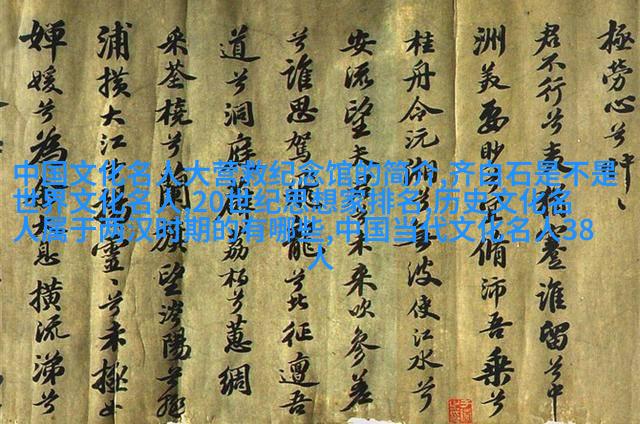 中国文化名人大营救纪念馆的简介,齐白石是不是
世界文化名人,20世纪思想家排名,历史文化名
人属于两汉时期的有哪些,中国当代文化名人38
人
極勞心兮
君不行兮夷蹇誰留兮中
洲美要眇兮脩沛吾乘兮
桂舟令沅湘兮波使江水兮
安流望夫君兮未來吹參差
兮誰思駕龍兮北征邅吾
道兮洞庭荔柏兮蕙綢
采荃橈兮旌望涔陽兮
浦橫大江兮靈兮未極女
嬋媛兮為息橫流涕兮